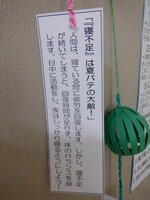 「『寝不足』は夏バテの大敵！」
人間は、寝ている間に疲労を回復します。しかし、寝不足
が続いてしまうと、回復時間が足りず、体のバランスを崩
します。日中に活動をし、夜はしっかり寝るようにしよう！